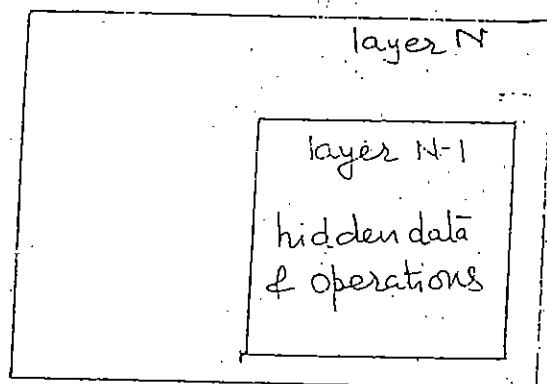 layer N
layer N-1
hidden data
& operations